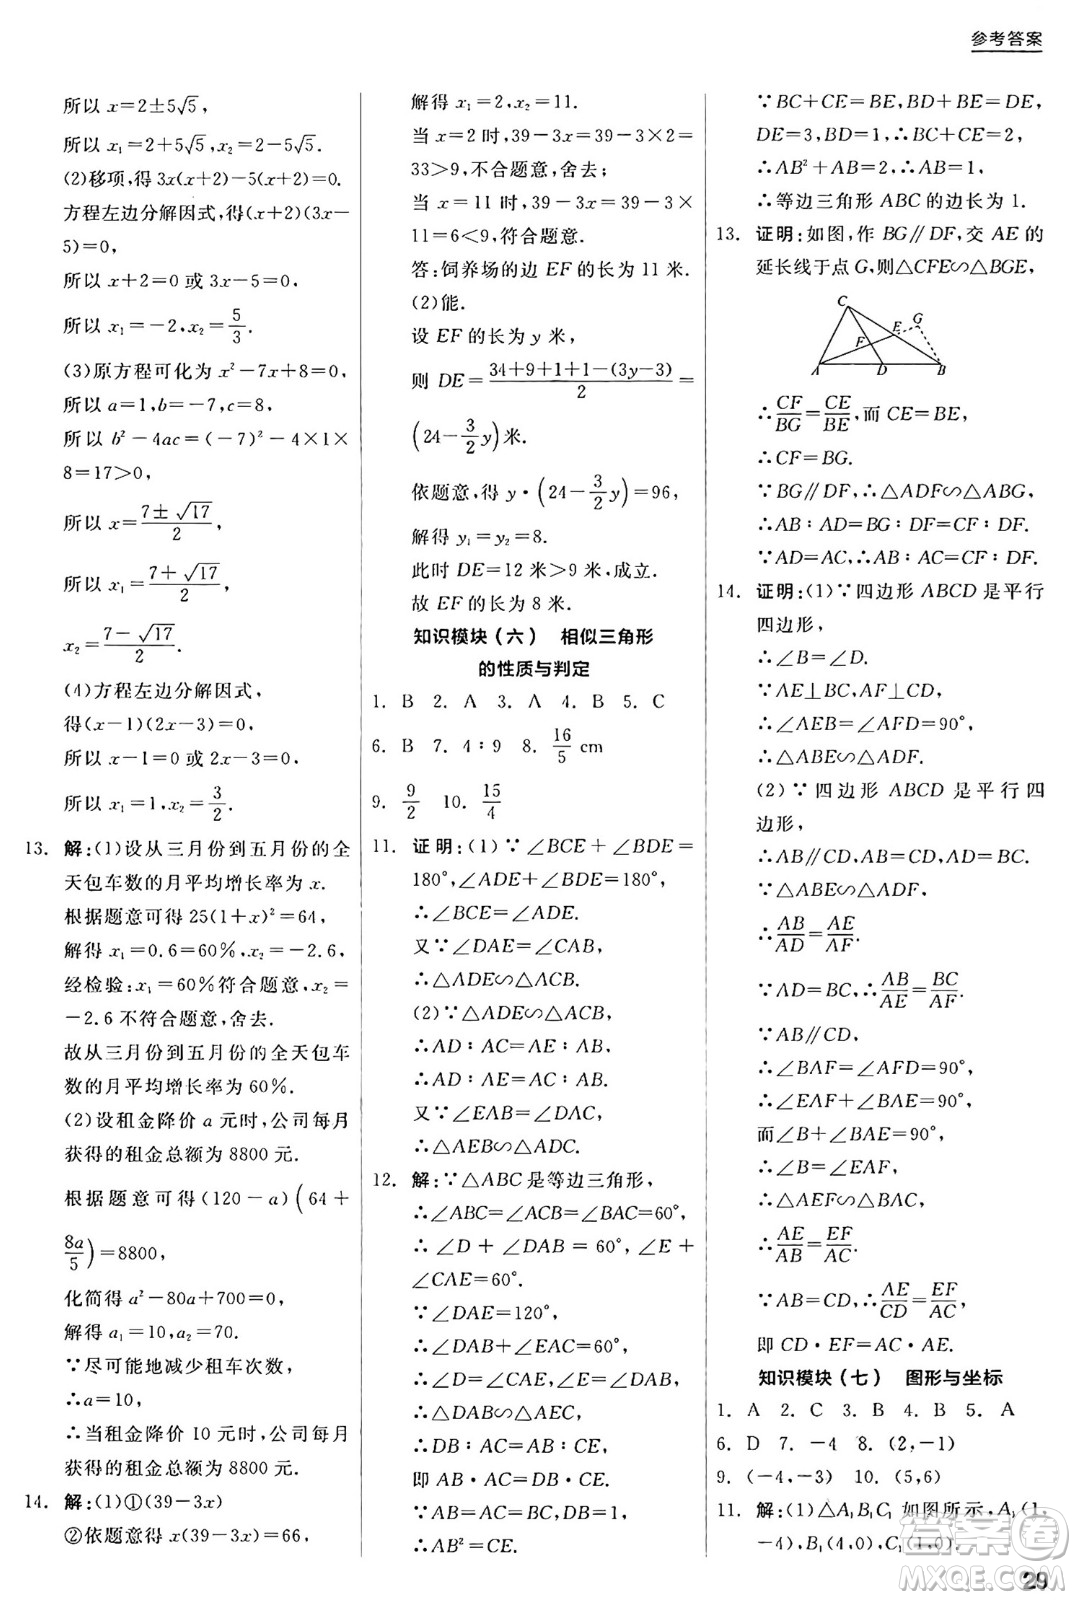 参考答案
所以 x=2±5√5,
所以 x₁=2+5√5,x₂=2-5√5.
(2)移项,得 3x(x+2)-5(x+2)=0.
方程左边分解因式,得(x+2)(3x-
5)=0,
所以 x+2=0 或 3x-5=0,
所以 x₁=-2,x₂=5/3.
(3)原方程可化为 x²-7x+8=0,
所以 a=1,b=-7,c=8,
所以 b²-4ac=(-7)²-4×1×
8=17>0,
所以 x=(7±√17)/2,
所以 x₁=(7+√17)/2,
x₂=(7-√17)/2.
(4)方程左边分解因式,
得(x-1)(2x-3)=0,
所以 x-1=0 或 2x-3=0,
所以 x₁=1,x₂=3/2.
13. 解:(1)设从三月份到五月份的全
天包车数的月平均增长率为 x.
根据题意可得 25(1+x)²=64,
解得 x₁=0.6=60%,x₂=-2.6,
经检验:x₁=60%符合题意,x₂=
-2.6 不符合题意,舍去.
故从三月份到五月份的全天包车
数的月平均增长率为 60%.
(2)设租金降价 a 元时,公司每月
获得的租金总额为 8800 元.
根据题意可得(120-a)(64+
8a/5)=8800,
化简得 a²-80a+700=0,
解得 a₁=10,a₂=70.
∵尽可能地减少租车次数,
∴a=10,
∴当租金降价 10 元时,公司每月
获得的租金总额为 8800 元.
14. 解:(1)①(39-3x)
②依题意得 x(39-3x)=66,
解得 x₁=2,x₂=11.
当 x=2 时,39-3x=39-3×2=
33>9,不符合题意,舍去;
当 x=11 时,39-3x=39-3×
11=6<9,符合题意.
答:饲养场的边 EF 的长为 11 米.
(2)能.
设 EF 的长为 y 米,
则 DE=(34+9+1+1-(3y-3))/2=
(24-3/2y)米.
依题意,得 y·(24-3/2y)=96,
解得 y₁=y₂=8.
此时 DE=12 米>9 米,成立.
故 EF 的长为 8 米.
知识模块(六) 相似三角形
的性质与判定
1. B 2. A 3. A 4. B 5. C
6. B 7. 4∶9 8. 16/5 cm
9. 9/2 10. 15/4
11. 证明:(1)∵∠BCE+∠BDE=
180°,∠ADE+∠BDE=180°,
∴∠BCE=∠ADE.
又∵∠DAE=∠CAB,
∴△ADE∽△ACB.
(2)∵△ADE∽△ACB,
∴AD∶AC=AE∶AB,
∴AD∶AE=AC∶AB.
又∵∠EAB=∠DAC,
∴△AEB∽△ADC.
12. 解:∵△ABC是等边三角形,
∴∠ABC=∠ACB=∠BAC=60°,
∴∠D+∠DAB=60°,∠E+
∠CAE=60°.
∵∠DAE=120°,
∴∠DAB+∠EAC=60°,
∴∠D=∠CAE,∠E=∠DAB,
∴△DBA∽△ACE,
∴DB∶AC=AB∶CE,
即 AB·AC=DB·CE.
∵AB=AC,
∴AB²=DB·CE.
∵BC+CE=BE,BD+BE=DE,
DE=3,BD=1,∴BC+CE=2,
∴AB²+AB=2,∴AB=1,
∴等边三角形 ABC 的边长为 1.
13. 证明:如图,作 BG∥DF,交 AE 的
延长线于点 G,则△CFE∽△BGE,
C
G
E
F
A
D
B
∴CF/BG=CE/BE,而 CE=BE,
∴CF=BG.
∵BG∥DF,∴△ADF∽△ABG,
∴AB∶AD=BG∶DF=CF∶DF.
∵AD=AC,∴AB∶AC=CF∶DF.
14. 证明:(1)∵四边形 ABCD 是平行
四边形,
∴∠B=∠D.
∵AE⊥BC,AF⊥CD,
∴∠AEB=∠AFD=90°,
∴△ABE∽△ADF.
(2)∵四边形 ABCD 是平行四
边形,
∴AB∥CD,AD=BC.
∵△ABE∽△ADF,
∴AB/AD=AE/AF.
∵AD=BC,∴AB/AE=BC/AF.
∵AB∥CD,
∴∠BAF=∠AFD=90°,
∴∠EAF+∠BAE=90°,
而∠B+∠BAE=90°,
∴∠B=∠EAF,
∴△AEF∽△BAC,
∴AE/AB=EF/AC.
∵AB=CD,∴AE/CD=EF/AC,
即 CD·EF=AC·AE.
知识模块(七) 图形与坐标
1. A 2. C 3. B 4. B 5. A
6. D 7. -4 8. (2,-1)
9. (-4,-3) 10. (5,6)
11. 解:(1)△A₁B₁C₁ 如图所示,A₁(1,
-4),B₁(4,2),C₁(1,0).
答案圈
MXQE.COM
29